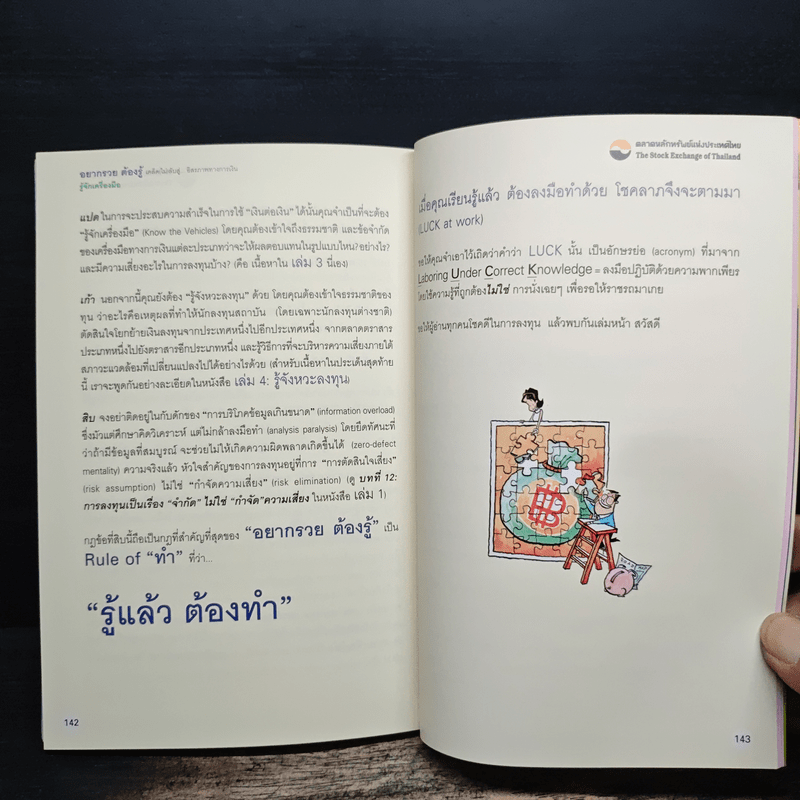 อยากรวย ต้องรู้ เคล็ดไม่ลับสู่...อิสรภาพทางการเงิน
รู้จักเครื่องมือ
แปด ในการจะประสบความสำเร็จในการใช้ “เงินต่อเงิน” ได้นั้นคุณจำเป็นที่จะต้อง
“รู้จักเครื่องมือ” (Know the Vehicles) โดยคุณต้องเข้าใจถึงธรรมชาติ และข้อจำกัด
ของเครื่องมือทางการเงินแต่ละประเภทว่าจะให้ผลตอบแทนในรูปแบบไหน?อย่างไร?
และมีความเสี่ยงอะไรในการลงทุนบ้าง? (คือ เนื้อหาใน เล่ม 3 นี่เอง)
เก้า นอกจากนี้คุณยังต้อง “รู้จังหวะลงทุน” ด้วย โดยคุณต้องเข้าใจธรรมชาติของ
ทุน ว่าอะไรคือเหตุผลที่ทำให้นักลงทุนสถาบัน (โดยเฉพาะนักลงทุนต่างชาติ)
ตัดสินใจโยกย้ายเงินลงทุนจากประเทศหนึ่งไปอีกประเทศหนึ่ง จากตลาดตราสาร
ประเภทหนึ่งไปยังตราสารอีกประเภทหนึ่ง และรู้วิธีการที่จะบริหารความเสี่ยงภายใต้
สภาวะแวดล้อมที่เปลี่ยนแปลงไปได้อย่างไรด้วย (สำหรับเนื้อหาในประเด็นสุดท้าย
นี้ เราจะพูดกันอย่างละเอียดในหนังสือ เล่ม 4: รู้จังหวะลงทุน)
สิบ จงอย่าติดอยู่ในกับดักของ “การบริโภคข้อมูลเกินขนาด” (information overload)
ซึ่งมัวแต่ศึกษาคิดวิเคราะห์ แต่ไม่กล้าลงมือทำ (analysis paralysis) โดยยึดทัศนะที่
ว่าถ้ามีข้อมูลที่สมบูรณ์ จะช่วยไม่ให้เกิดความผิดพลาดเกิดขึ้นได้ (zero-defect
mentality) ความจริงแล้ว หัวใจสำคัญของการลงทุนอยู่ที่การ “การตัดสินใจเสี่ยง”
(risk assumption) ไม่ใช่ “กำจัดความเสี่ยง” (risk elimination) (ดู บทที่ 12:
การลงทุนเป็นเรื่อง “จำกัด” ไม่ใช่ “กำจัด”ความเสี่ยง ในหนังสือ เล่ม 1)
กฎข้อที่สิบนี้ถือเป็นกฎที่สำคัญที่สุดของ “อยากรวย ต้องรู้” เป็น
Rule of “ทำ” ที่ว่า...
“รู้แล้ว ต้องทำ”
142
ตลาดหลักทรัพย์แห่งประเทศไทย
The Stock Exchange of Thailand
เมื่อคุณเรียนรู้แล้ว ต้องลงมือทำด้วย โชคลาภจึงจะตามมา
(LUCK at work)
ขอให้คุณจำเอาไว้เถิดว่าคำว่า LUCK นั้น เป็นอักษรย่อ (acronym) ที่มาจาก
Laboring Under Correct Knowledge = ลงมือปฏิบัติด้วยความพากเพียร
โดยใช้ความรู้ที่ถูกต้องไม่ใช่ การนั่งเฉยๆ เพื่อรอให้ราชรถมาเกย
ขอให้ผู้อ่านทุกคนโชคดีในการลงทุน แล้วพบกันเล่มหน้า สวัสดี
143